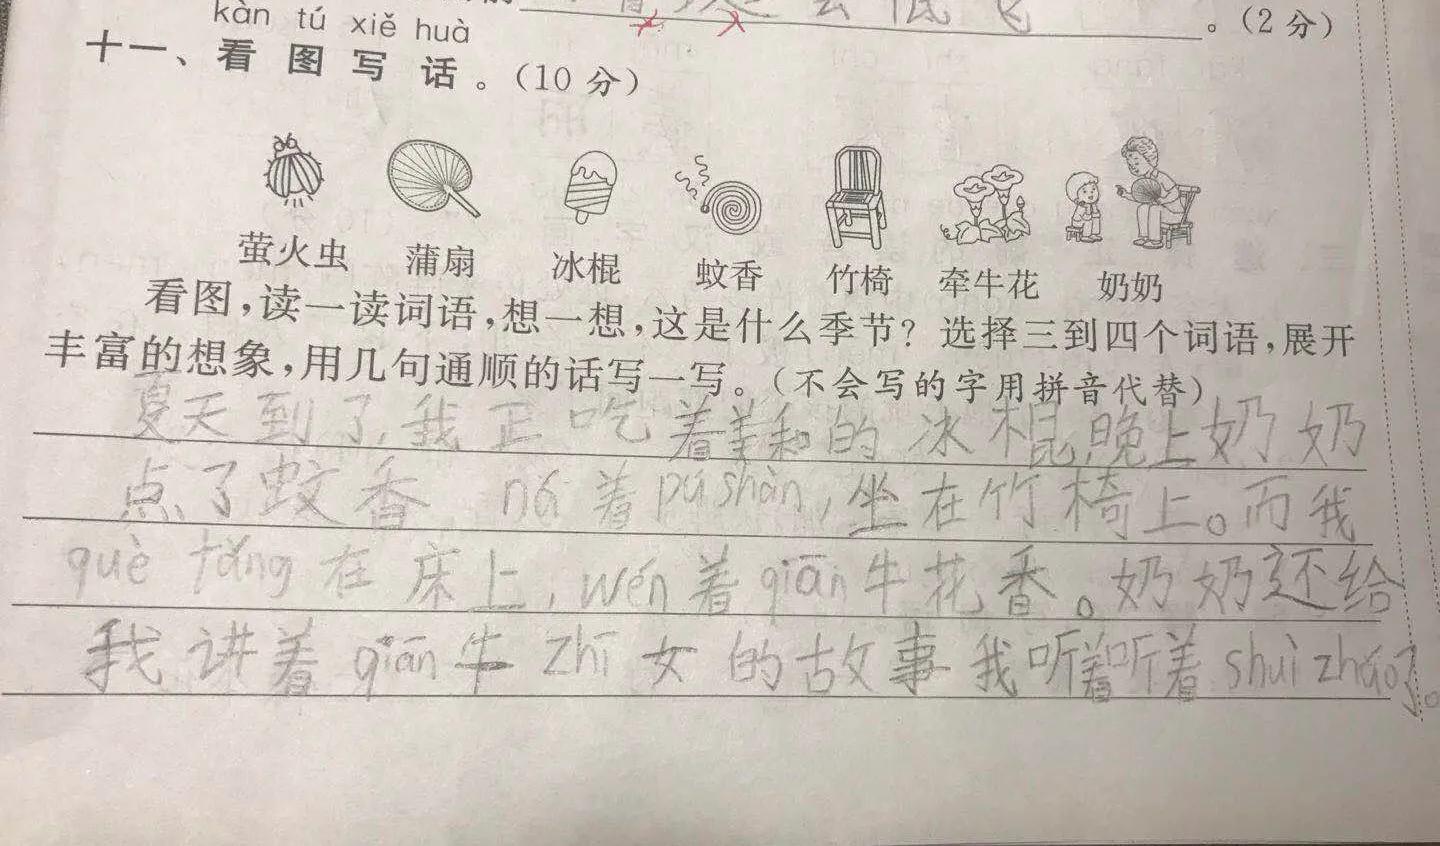 。(2 分)
kàn tú xiě huà
十一、看 图 写 话。(10 分)
萤火虫 蒲扇 冰棍 蚊香 竹椅 牵牛花 奶奶
看图,读一读词语,想一想,这是什么季节?选择三到四个词语,展开
丰富的想象,用几句通顺的话写一写。(不会写的字用拼音代替)
夏天到了,我正吃着美和的冰棍,晚上奶奶
点了蚊香, ná 着 pú shàn,坐在竹椅上。而我
què tǎng 在床上,wén 着 qiān 牛花香。奶奶还给
我讲着 qiān 牛 zhī 女的故事我听着听着 shuì zháo了。